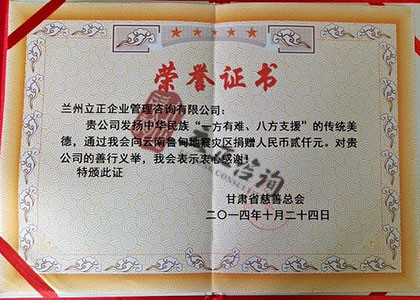 荣誉证书
兰州立正企业管理咨询有限公司：
贵公司发扬中华民族“一方有难、八方支援”的传统美
德，通过我会向云南鲁甸地震灾区捐赠人民币贰仟元。对贵
公司的善行义举，我会表示衷心感谢！
特颁此证
甘肃省慈善总会
二〇一四年十月二十四日
立正咨询